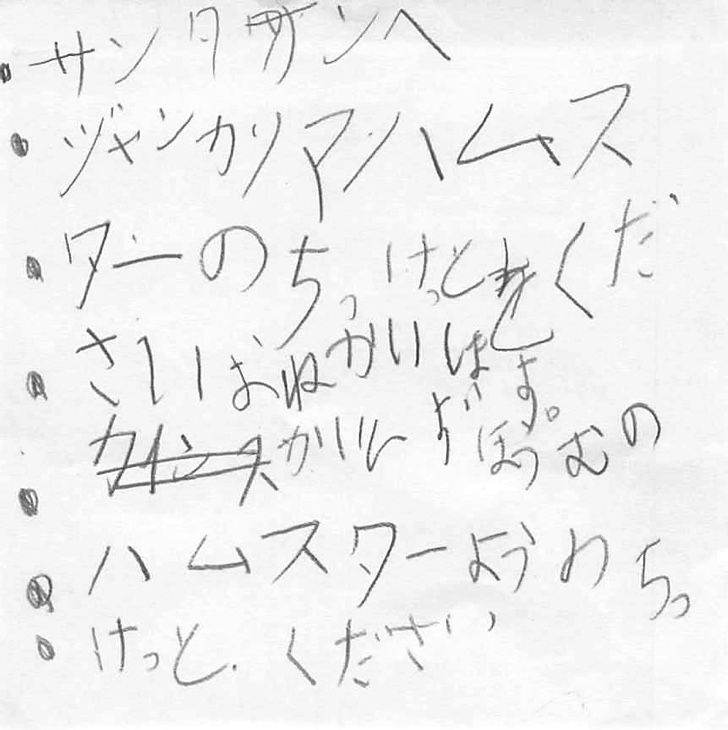 ・サンタサンヘ
・ジャンガリアンハムス
・ターのちっけっとをくだ
・さいおねがいします。
かいんずほうむの
・ハムスターようのち
・けっと.ください